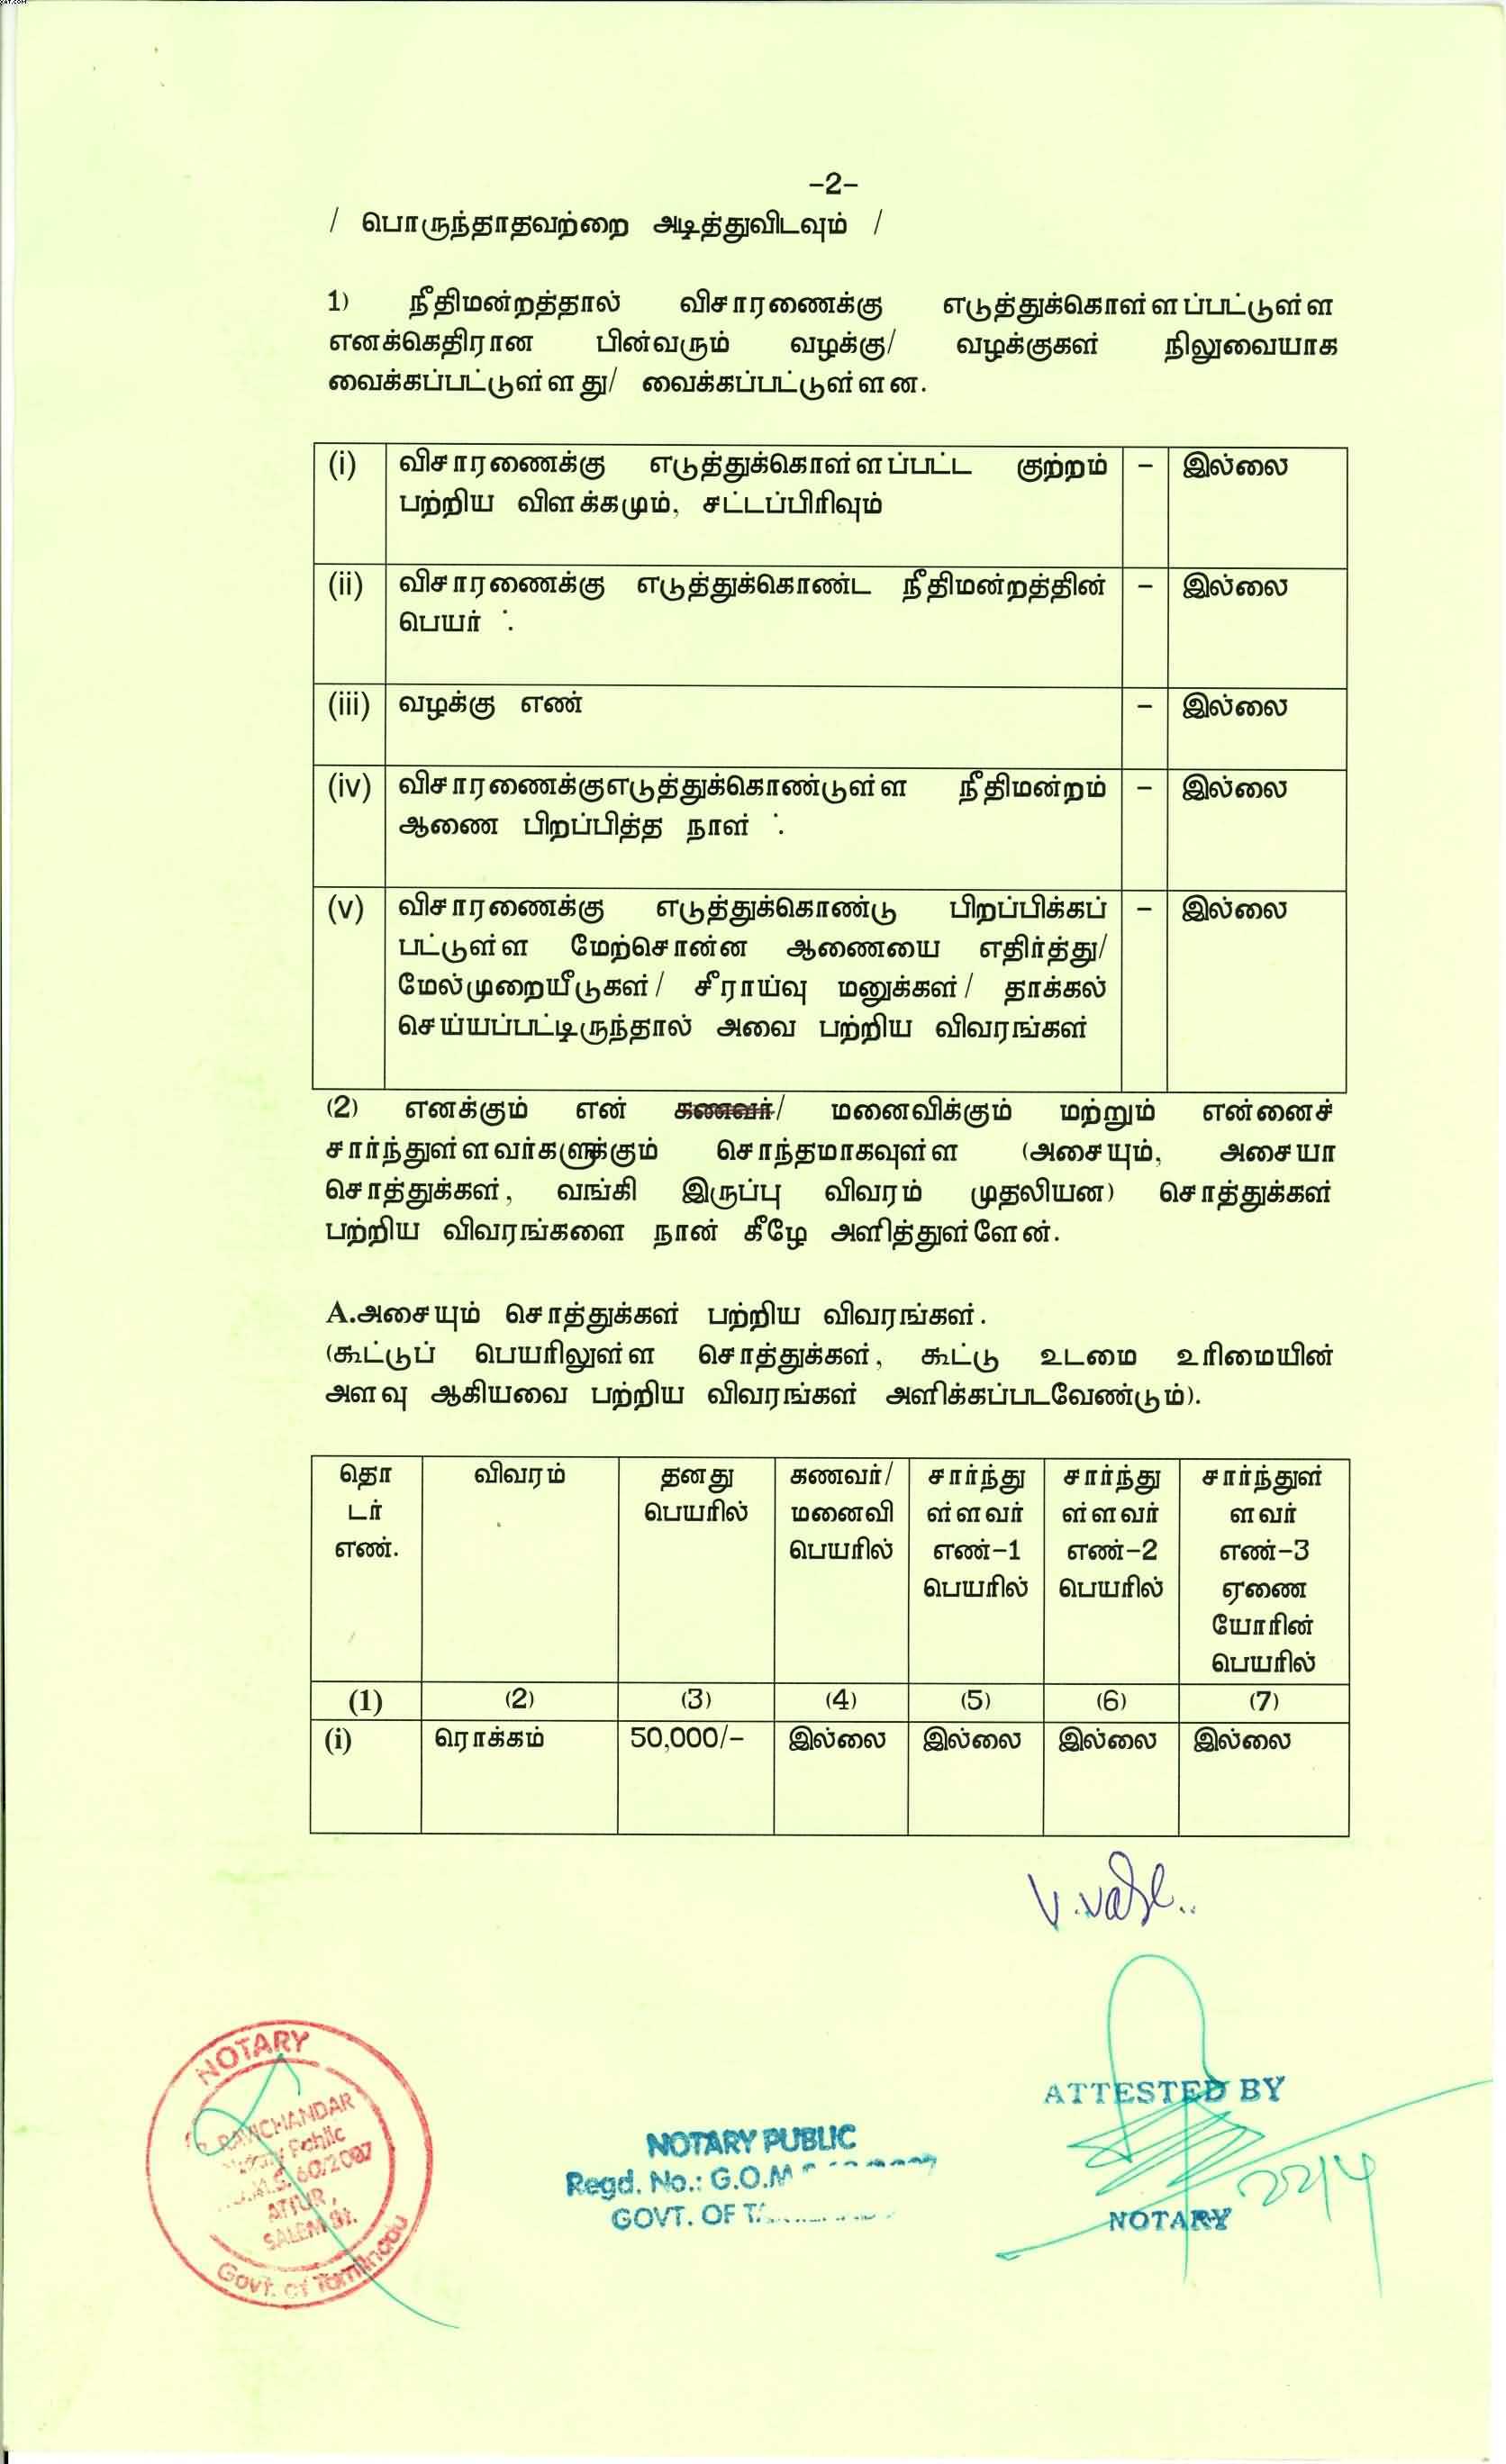 -2-
/ பொருந்தாதவற்றை அடித்துவிடவும் /
1) நீதிமன்றத்தால் விசாரணைக்கு எடுத்துக்கொள்ளப்பட்டுள்ள
எனக்கெதிரான பின்வரும் வழக்கு/ வழக்குகள் நிலுவையாக
வைக்கப்பட்டுள்ளது/ வைக்கப்பட்டுள்ளன.
(i) விசாரணைக்கு எடுத்துக்கொள்ளப்பட்ட குற்றம் - இல்லை
பற்றிய விளக்கமும், சட்டப்பிரிவும்
(ii) விசாரணைக்கு எடுத்துக்கொண்ட நீதிமன்றத்தின் - இல்லை
பெயர் :.
(iii) வழக்கு எண் - இல்லை
(iv) விசாரணைக்குஎடுத்துக்கொண்டுள்ள நீதிமன்றம் - இல்லை
ஆணை பிறப்பித்த நாள் :.
(v) விசாரணைக்கு எடுத்துக்கொண்டு பிறப்பிக்கப் - இல்லை
பட்டுள்ள மேற்சொன்ன ஆணையை எதிர்த்து/
மேல்முறையீடுகள்/ சீராய்வு மனுக்கள்/ தாக்கல்
செய்யப்பட்டிருந்தால் அவை பற்றிய விவரங்கள்
(2) எனக்கும் என் கணவர்/ மனைவிக்கும் மற்றும் என்னைச்
சார்ந்துள்ளவர்களுக்கும் சொந்தமாகவுள்ள (அசையும், அசையா
சொத்துக்கள், வங்கி இருப்பு விவரம் முதலியன) சொத்துக்கள்
பற்றிய விவரங்களை நான் கீழே அளித்துள்ளேன்.
A.அசையும் சொத்துக்கள் பற்றிய விவரங்கள்.
(கூட்டுப் பெயரிலுள்ள சொத்துக்கள், கூட்டு உடமை உரிமையின்
அளவு ஆகியவை பற்றிய விவரங்கள் அளிக்கப்படவேண்டும்).
தொ விவரம் தனது கணவர்/ சார்ந்து சார்ந்து சார்ந்துள்
டர் பெயரில் மனைவி ள்ளவர் ள்ளவர் ளவர்
எண். பெயரில் எண்-1 எண்-2 எண்-3
பெயரில் பெயரில் ஏணை
யோரின்
பெயரில்
(1) (2) (3) (4) (5) (6) (7)
(i) ரொக்கம் 50,000/- இல்லை இல்லை இல்லை இல்லை
NOTARY
RAMCHANDAR
Notary Public
60/2007
ATTUR,
SALEM Dt.
Govt. of Tamilnadu
NOTARY PUBLIC
Regd. No.: G.O.M
GOVT. OF
ATTESTED BY
NOTARY